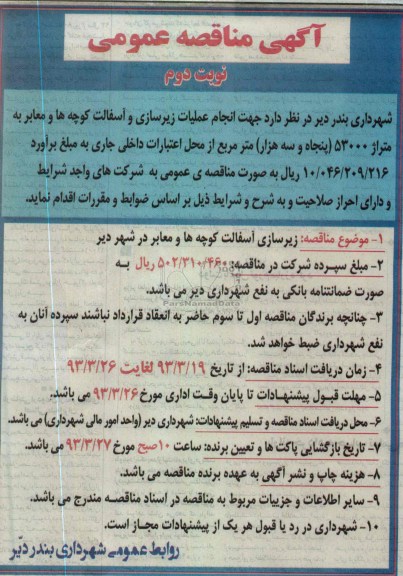 آگهی مناقصه عمومی
نوبت دوم
شهرداری بندر دیر در نظر دارد جهت انجام عملیات زیرسازی و آسفالت کوچه ها و معابر به
متراژ ۵۳۰۰۰ (پنجاه و سه هزار) متر مربع از محل اعتبارات داخلی جاری به مبلغ برآورد
۱۰/۰۴۶/۲۰۹/۲۱۶ ریال به صورت مناقصه ی عمومی به شرکت های واجد شرایط
و دارای احراز صلاحیت و به شرح و شرایط ذیل بر اساس ضوابط و مقررات اقدام نماید.
۱- موضوع مناقصه: زیرسازی آسفالت کوچه ها و معابر در شهر دیر
۲- مبلغ سپرده شرکت در مناقصه: ۵۰۲/۳۱۰/۴۶۰ ریال به
صورت ضمانتنامه بانکی به نفع شهرداری دیر می باشد.
ParsNamadData
۳- چنانچه برندگان مناقصه اول تا سوم حاضر به انعقاد قرارداد نباشند سپرده آنان به
نفع شهرداری ضبط خواهد شد.
۴- زمان دریافت اسناد مناقصه: از تاریخ ۹۳/۳/۱۹ لغایت ۹۳/۳/۲۶
۵- مهلت قبول پیشنهادات تا پایان وقت اداری مورخ ۹۳/۳/۲۶ می باشد.
۶- محل دریافت اسناد مناقصه و تسلیم پیشنهادات: شهرداری دیر (واحد امور مالی شهرداری) می باشد.
۷- تاریخ بازگشایی پاکت ها و تعیین برنده: ساعت ۱۰ صبح مورخ ۹۳/۳/۲۷ می باشد.
۸- هزینه چاپ و نشر آگهی به عهده برنده مناقصه می باشد.
۹- سایر اطلاعات و جزییات مربوط به مناقصه در اسناد مناقصه مندرج می باشد.
۱۰- شهرداری در رد یا قبول هر یک از پیشنهادات مجاز است.
روابط عمومی شهرداری بندر دیّر